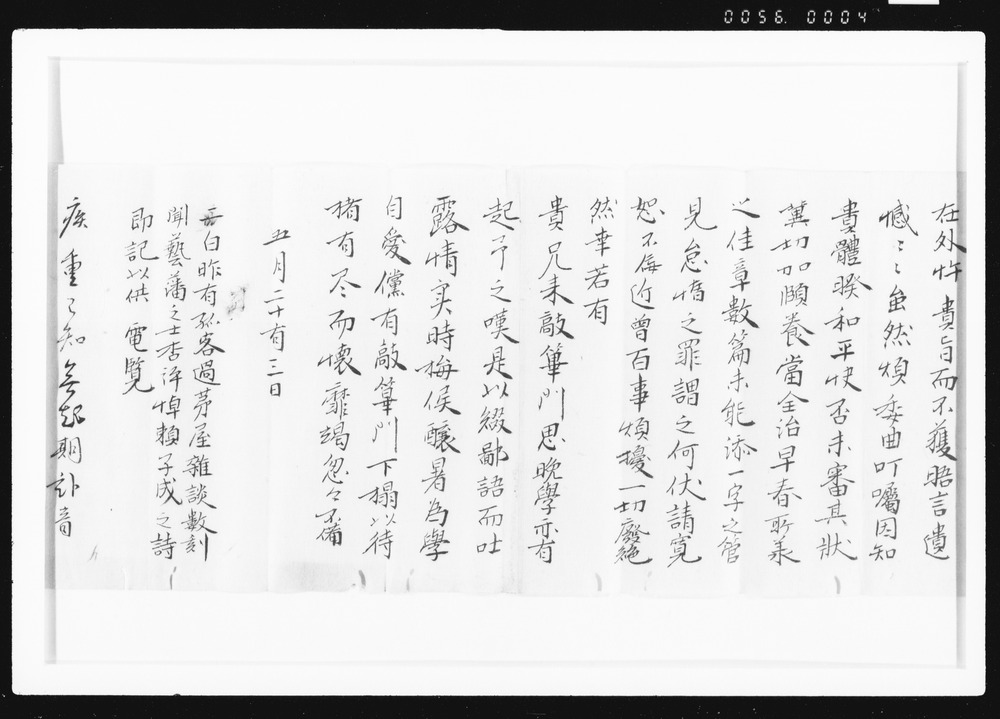 0056. 0004
在外忤 貴旨而不獲晤言遺
憾〻〻虽然煩 委曲叮囑因知
貴體睽和平快否未審其狀
冀切加頤養當全治早春所承
之佳章數篇未能添一字之管
見怠惰之罪謂之何伏請寬
恕不侮近曾百事煩擾一切廢絕
然幸若有
貴兄来敲篳門思晩學亦有
起予之嘆是以綴鄙語而吐
露情实時梅候釀暑為學
自愛儻有敲篳門下榻以待
楮有尽而懐靡竭忽々不備
五月二十有三日
白昨有孤客過茅屋雑談數刻
聞藝藩之士杏坪悼賴子成之詩
即記以供 電覧
疾重已知無起期訃音